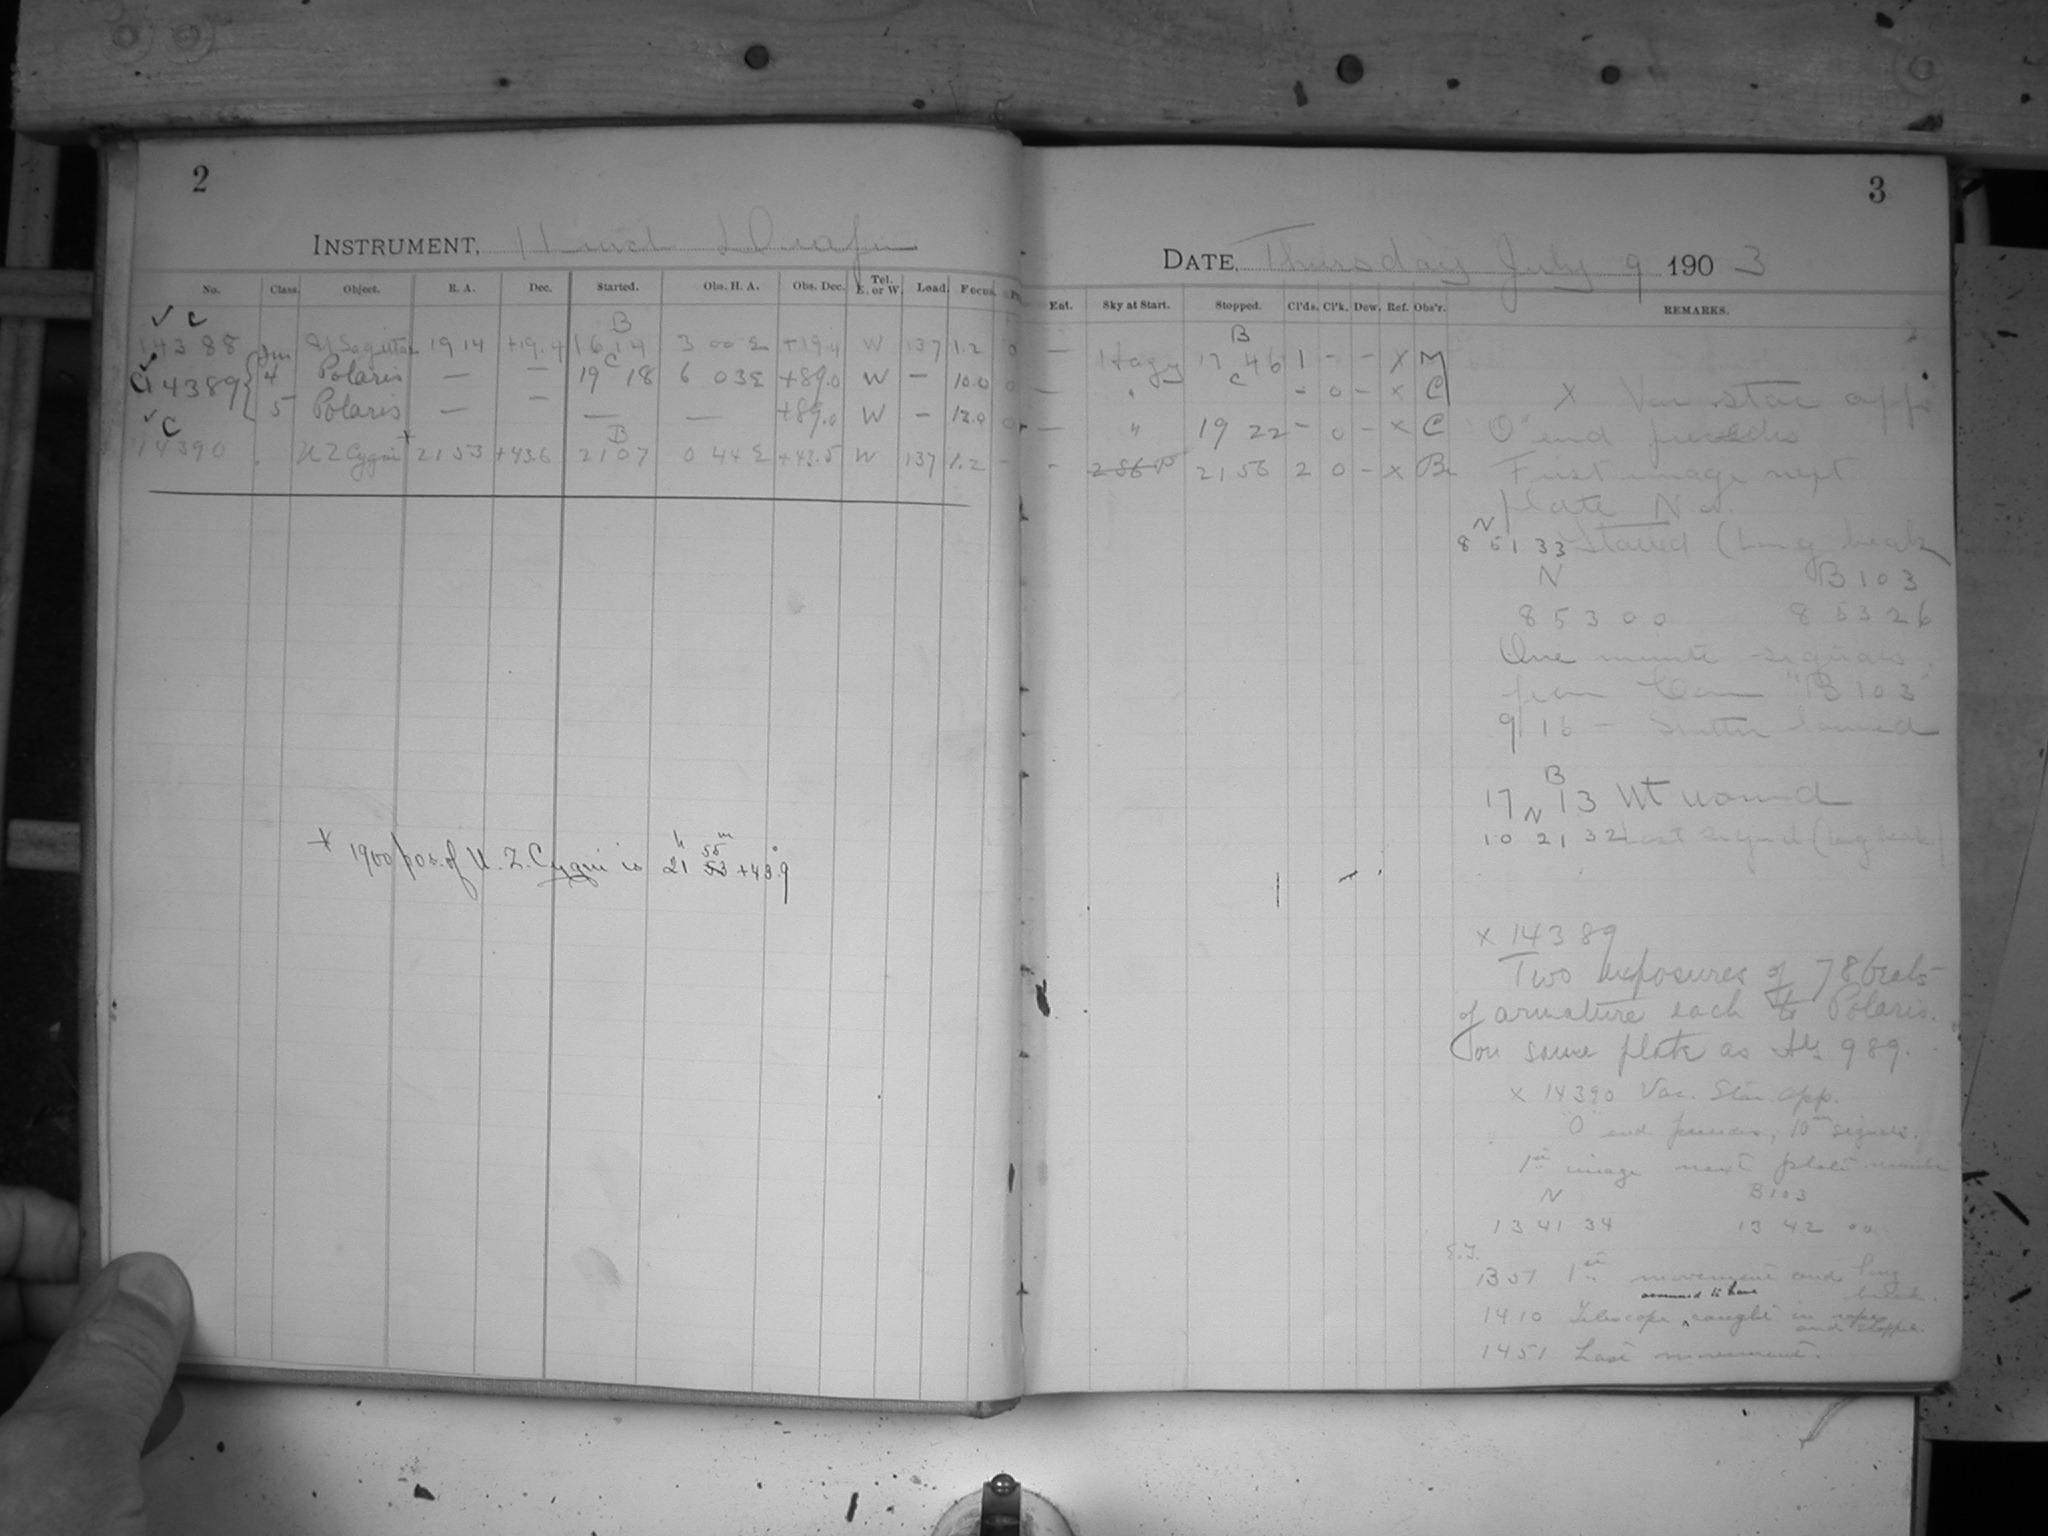 2
INSTRUMENT, 11 inch Draper
No. Class. Object. R. A. Dec. Started. Obs. H. A. Obs. Dec. Tel. E. or W. Load. Focus.
✓ C B
14388 U Sagittae 19 14 +19.4 16 14 3 00 E +19.4 W 137 1.2 0
C
C14389 4 Polaris — — 19 18 6 03 E +89.0 W — 10.0
5 Polaris — — — +89.0 W — 12.0
✓ C B
14390 UZ Cygni x 21 53 +43.6 21 07 0 44 E +43.5 W 137 1.2 -
x 1900 pos. of U. Z. Cygni is 21 h 55 m 53 +43°.9
3
DATE, Thursday July 9 1903
Ent. Sky at Start. Stopped. Cl'ds. Cl'k. Dew. Ref. Obs'r. REMARKS.
B
— Hazy 17 46 1 - - x M
C
— " - 0 - x C
— " 19 22 - 0 - x C
- 21 56 2 0 - x
x Var. star app.
"O" end precedes
First image next
plate No.
N
8 51 33 Started (Long break
N B 103
8 53 00 8 53 26
One minute signals
from Com "B 103"
9 16 — Shutter
B
17 13 Wt wound
N
10 21 32 Last signal (long break)
x 14389
Two exposures of 78 beats
of armature each to Polaris.
on same plate as 989.
x 14390 Var. Star app.
"O" end precedes, 10 m signals.
1st image next plate number
N B 103
13 41 34 13 42 00
S.T.
13 57 1st movement and long
break.
assumed to have
14 10 Telescope ^ caught in rope
and stopped.
14 51 Last movement.